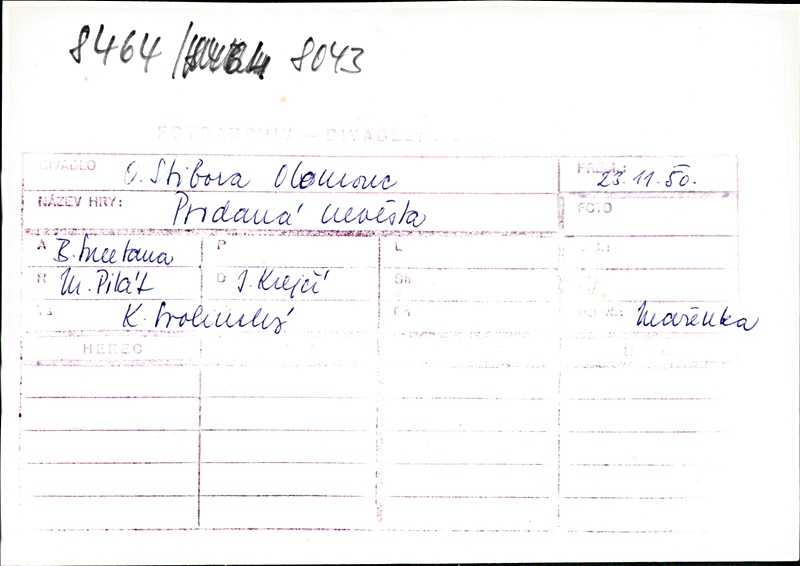 8464 / 8043
FOTOARCHIV – DIVADELNÍ
DIVADLO O. Stibora Olomouc 23. 11. 50.
NÁZEV HRY: Prodaná nevěsta FOTO
A B. Smetana P L
R M. Pilát D J. Krejčí
K. Mařenka
HEREC